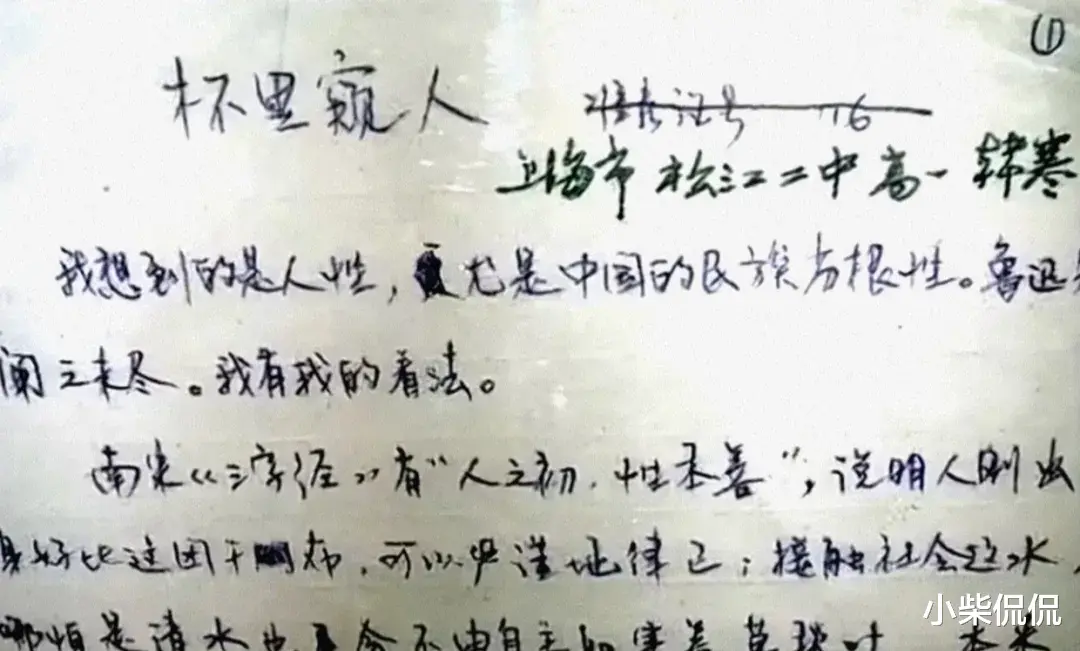 ①
杯里窥人
准考证号 116
上海市松江二中高一 韩寒
我想到的是人性，尤是中国的民族劣根性。鲁迅
阐之未尽。我有我的看法。
南宋《三字经》有“人之初，性本善”，说明人刚出
好比这团干布，可以严谨地律己；接触社会这水，
哪怕是清水也会不由自主
小柴侃侃